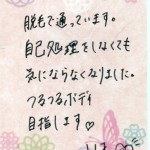 脱毛で通っています。
自己処理をしなくても
気にならなくなりました。
つるつるボディ
目指します♡